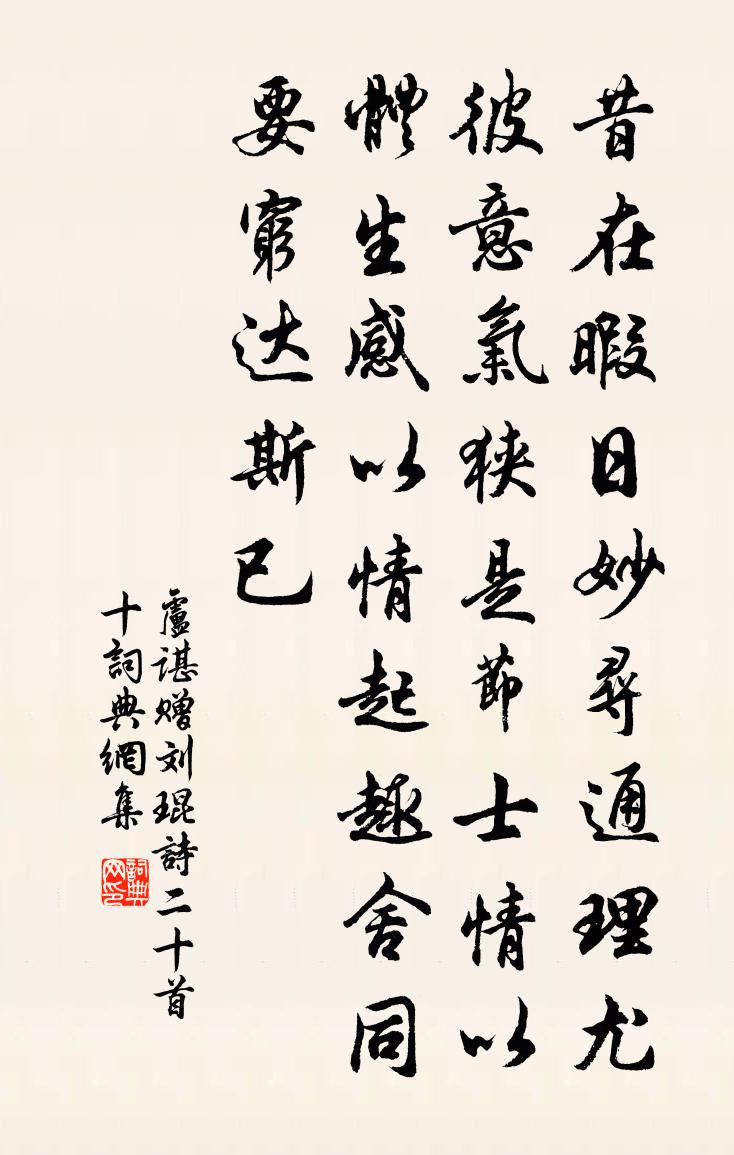 昔在暇日妙尋通理尤
彼意氣狹是節士情以
體生感以情起趣舍同
要窮达斯已
盧谌赠刘琨詩二十首
十詞典網集
詞典網印